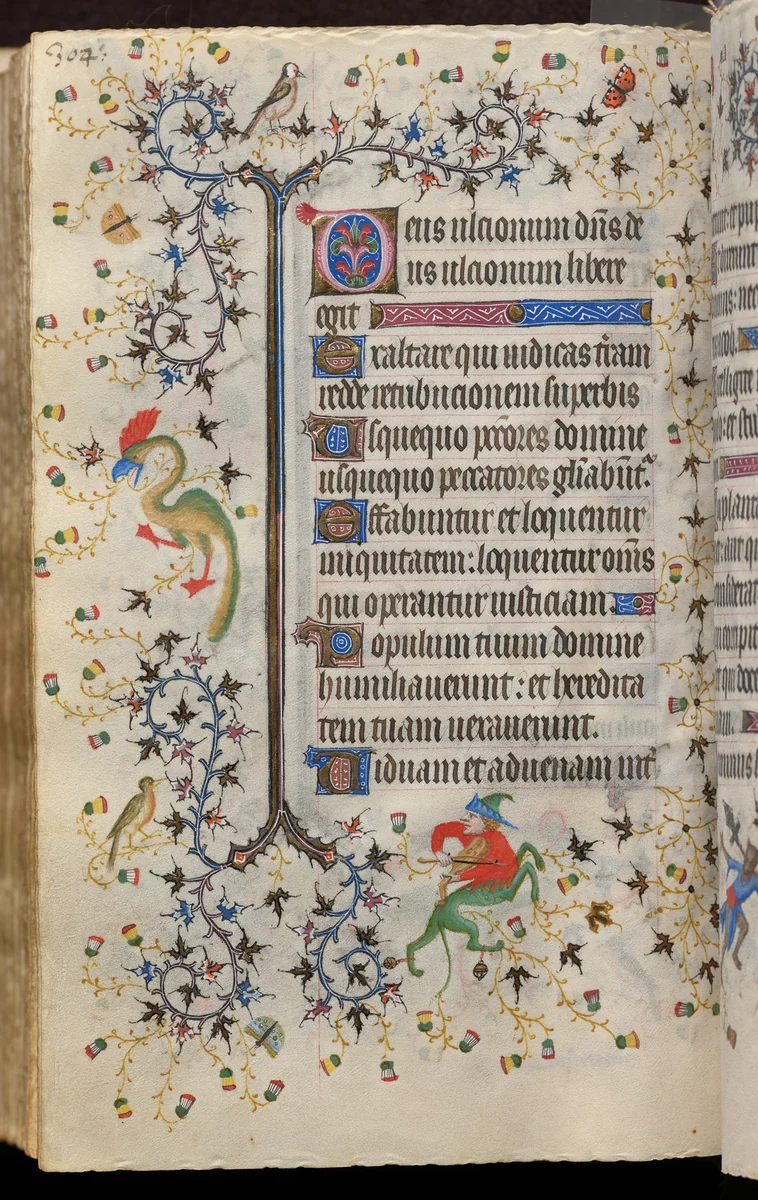 304.
Deus ulcionum dn̄s de
us ulcionum libere
egit
Exaltare qui iudicas tr̄am
redde retribucionem superbis
Usquequo pctōres domine
usquequo peccatores gl̄iabūt̄.
Effabuntur et loquentur
iniquitatem: loquentur om̄s
qui operantur iusticiam.
Populum tuum domine
humiliauerunt: et heredita
tem tuam uexauerunt.
Uiduam et aduenam int̄